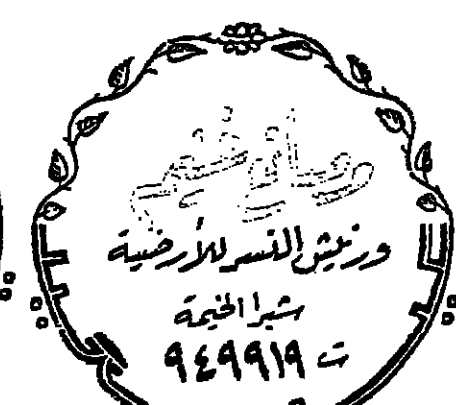 ورنيش النسر للأرضية
شبرا الخيمة
ت ٩٤٩٩١٩